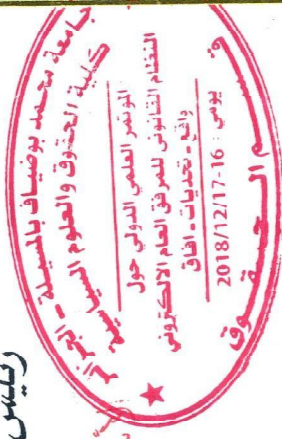 رئيس
جامعة محمد بوضياف بالمسيلة - الجزائر
كلية الحقوق والعلوم السياسية
المؤتمر العلمي الدولي حول
النظام القانوني للمرفق العام الالكتروني
واقع - تحديات - افاق
يومي : 16-17/12/2018
قسم الحقوق